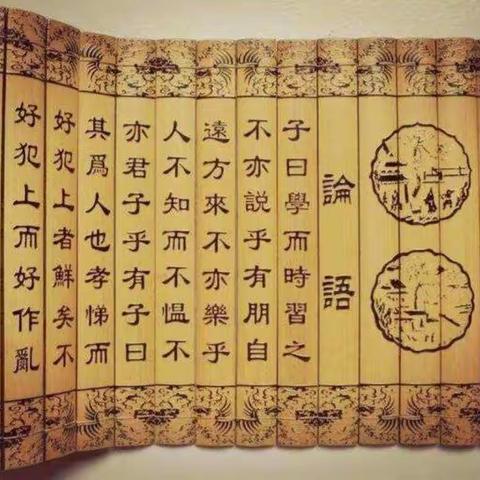 論語
子曰學而時習之
不亦說乎有朋自
遠方來不亦樂乎
人不知而不愠不
亦君子乎有子曰
其爲人也孝悌而
好犯上者鮮矣不
好犯上而好作亂